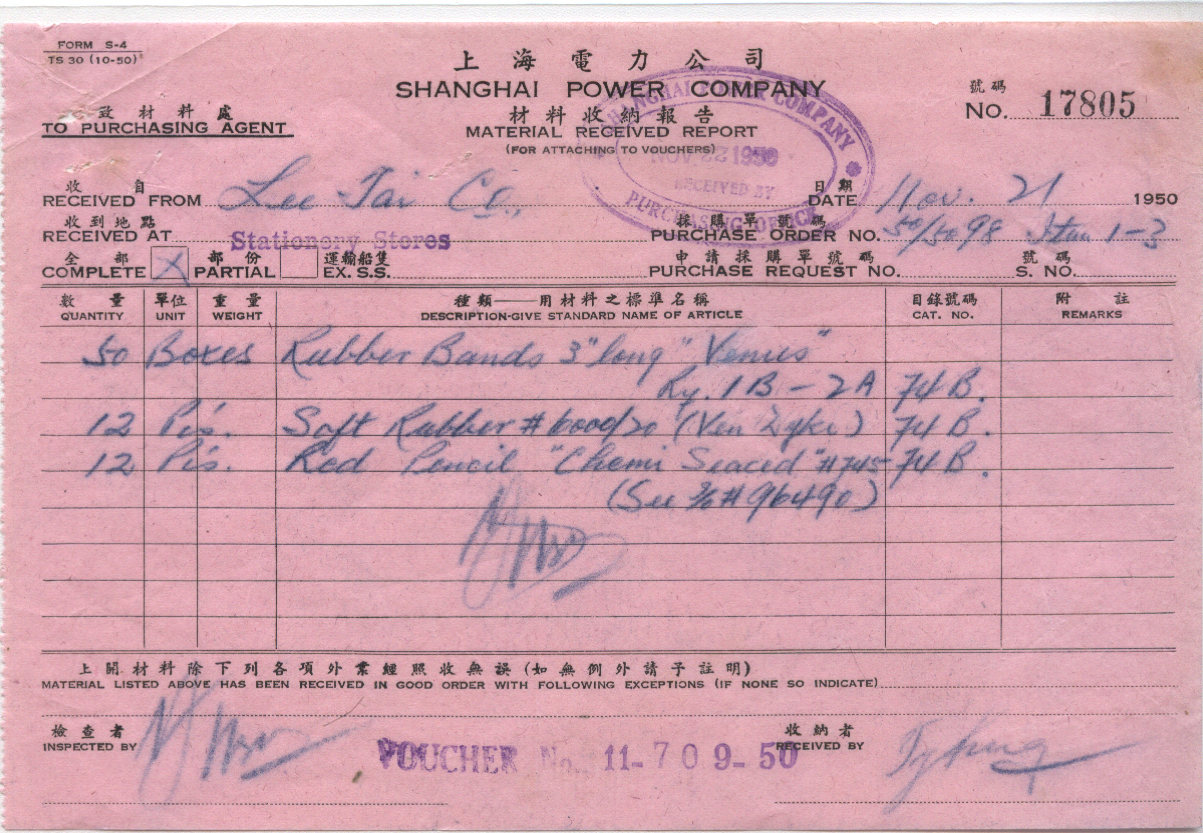 FORM S-4
TS 30 (10-50)
上海電力公司
SHANGHAI POWER COMPANY
號碼
NO. 17805
致材料處
TO PURCHASING AGENT
材料收納報告
MATERIAL RECEIVED REPORT
(FOR ATTACHING TO VOUCHERS)
SHANGHAI POWER COMPANY
NOV 22 1950
RECEIVED BY
PURCHASING OFFICE
收自
RECEIVED FROM Lee Tai Co.,
日期
DATE Nov. 21 1950
收到地點
RECEIVED AT Stationery Stores
採購單號碼
PURCHASE ORDER NO. 50/5098 Item 1-3
全部 部份 運輸船隻
COMPLETE X PARTIAL EX. S.S.
申請採購單號碼 號碼
PURCHASE REQUEST NO. S. NO.
數量 單位 重量 種類——用材料之標準名稱 目錄號碼 附註
QUANTITY UNIT WEIGHT DESCRIPTION-GIVE STANDARD NAME OF ARTICLE CAT. NO. REMARKS
50 Boxes Rubber Bands 3" long "Venus"
1B-2A 74B.
12 Soft Rubber #6000/20 74B.
12 Red Pencil "Chemi #745 74B.
(See #96490)
上開材料除下列各項外業經照收無誤(如無例外請予註明)
MATERIAL LISTED ABOVE HAS BEEN RECEIVED IN GOOD ORDER WITH FOLLOWING EXCEPTIONS (IF NONE SO INDICATE)
檢查者 收納者
INSPECTED BY RECEIVED BY
VOUCHER No. 11-709-50